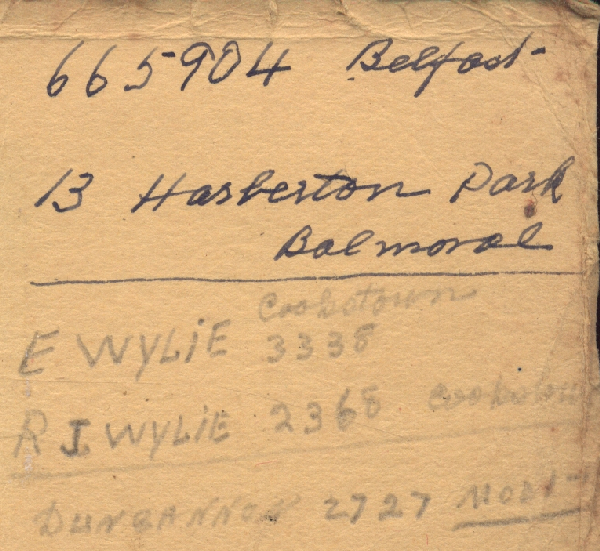 665904 Belfast
13 Harberton Park
Balmoral
Cookstown
E WYLIE 3338
R J WYLIE 2368 Cookstown
DUNGANNON 2727